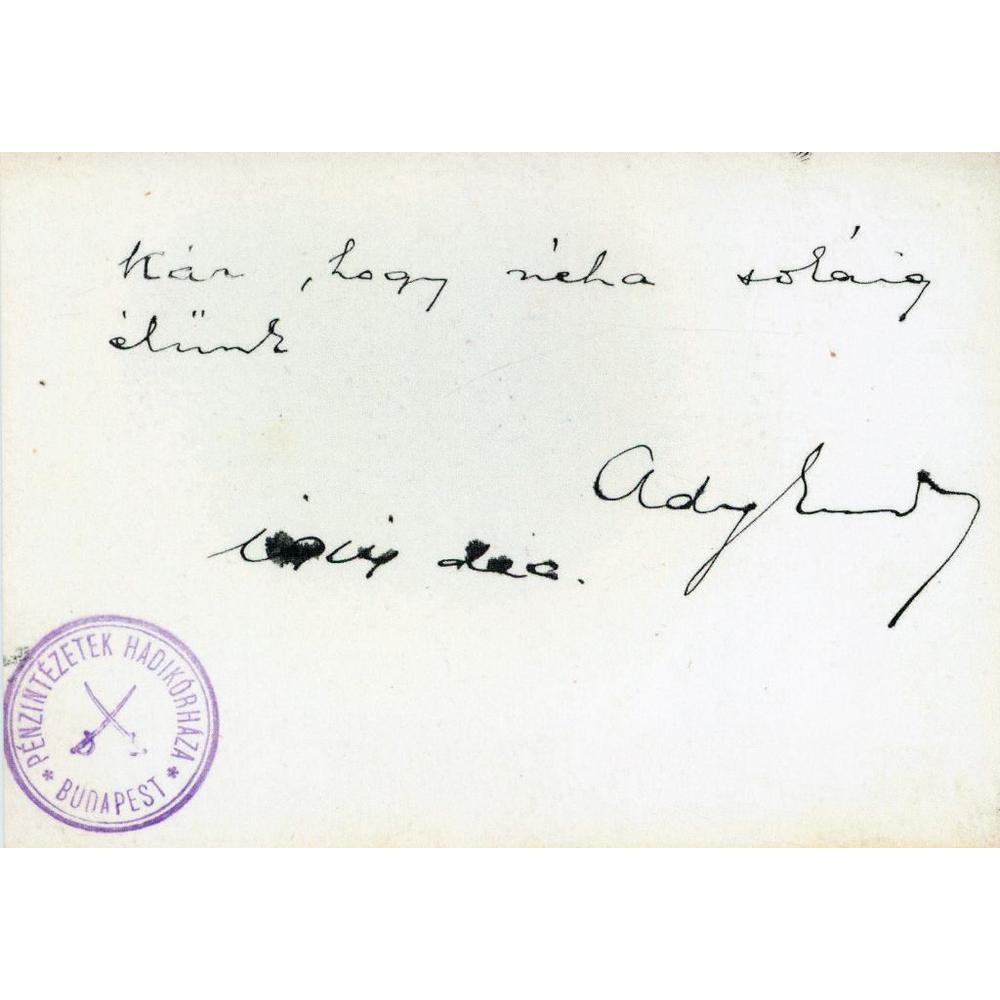 Kár, hogy néha sokáig
élünk
Ady Endre
dec.
PÉNZINTÉZETEK HADIKÓRHÁZA
* BUDAPEST *